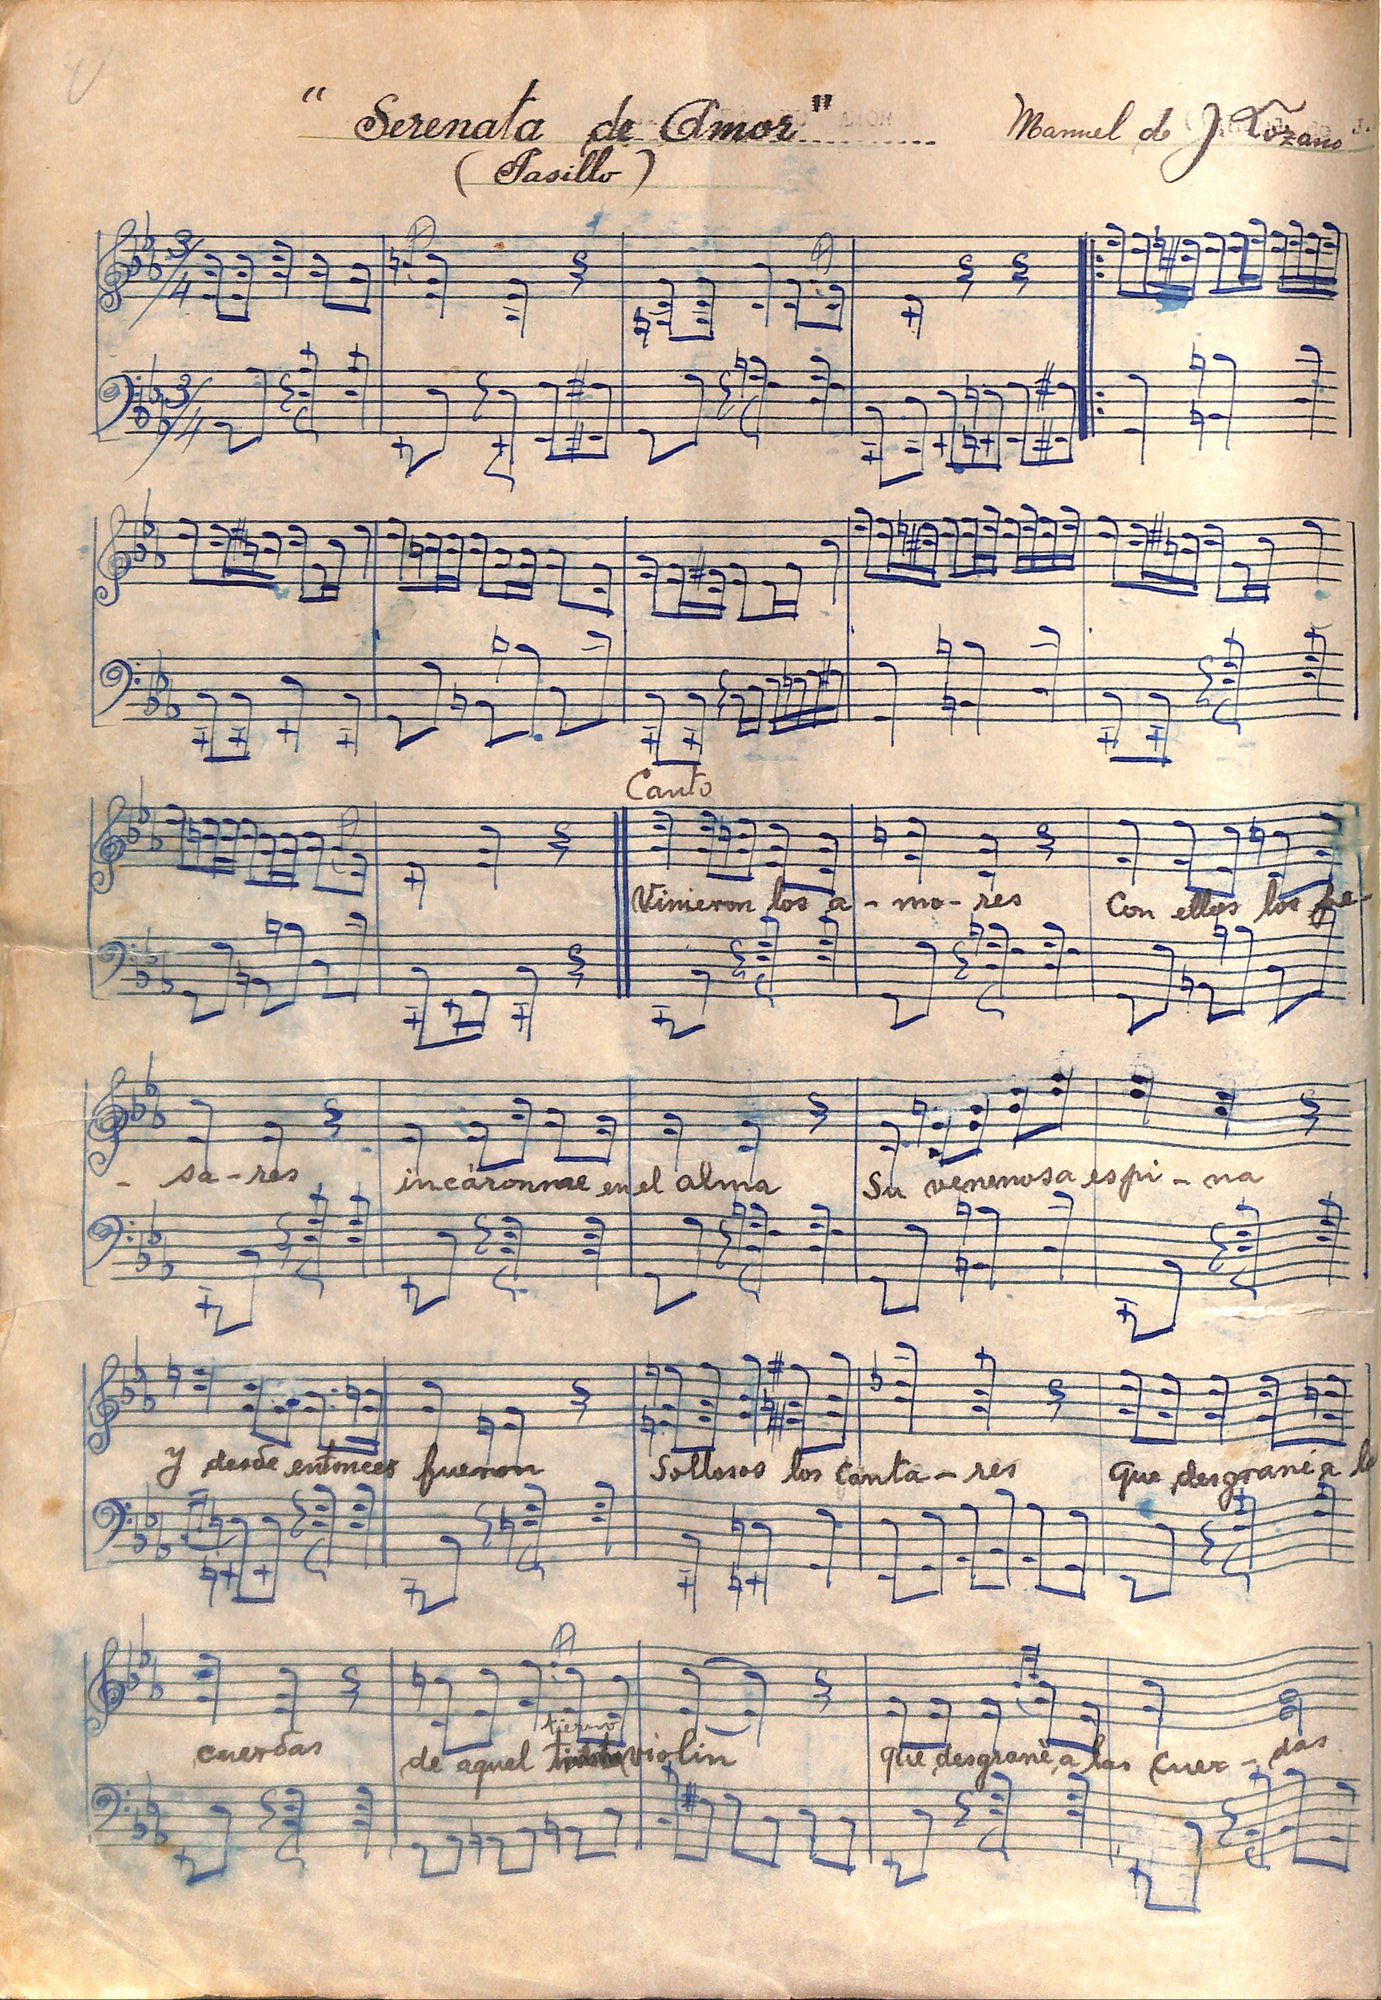 "Serenata de Amor"
Manuel de J. Lozano
(Pasillo)
3/4
3/4
Canto
Vinieron los a - mo - res Con ellos los pe -
- sa - res incáronme en el alma Su venenosa espi - na
Y desde entonces fueron Sollosos los canta - res que desgrané a la
tierno
cuerdas de aquel violin que desgrané a las cuer - das